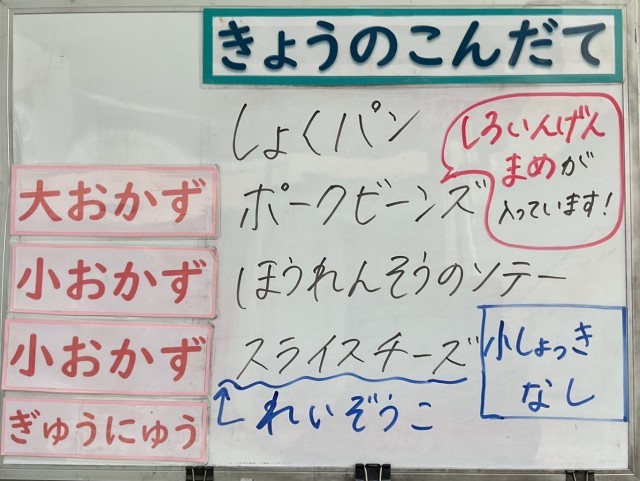 きょうのこんだて
しょくパン
しろいんげん
まめが
入っています!
大おかず
ポークビーンズ
小おかず
ほうれんそうのソテー
小おかず
スライスチーズ
小しょっき
なし
↑れいぞうこ
ぎゅうにゅう